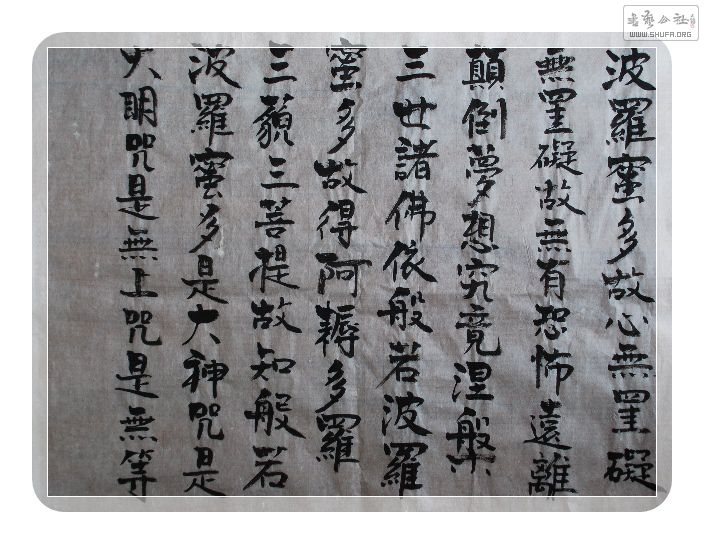 波羅蜜多故心無罣礙
無罣礙故無有恐怖遠離
顛倒夢想究竟涅槃
三世諸佛依般若波羅
蜜多故得阿耨多羅
三藐三菩提故知般若
波羅蜜多是大神咒是
大明咒是無上咒是無等
书艺公社
WWW.SHUFA.ORG